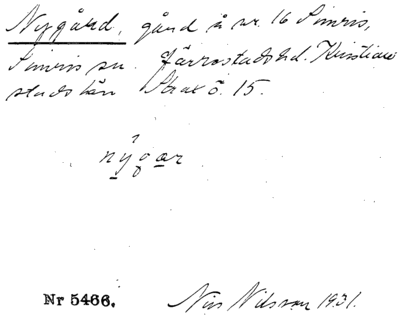 Nygård, gård å nr. 16 Simris,
Simris sn. Järrestads hd. Kristian
stads län Skax ö. 15.
nýgar
Nr 5466. Nils Nilsson 1931.